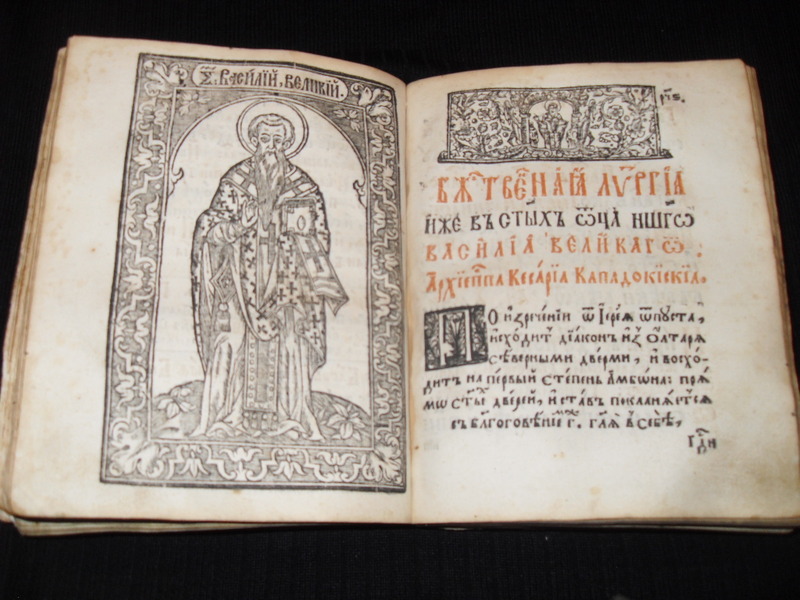 С҃: ВАСИ́ЛІЙ, ВЕЛИ́КІЙ.
р҃і҃ѕ.
БЖ҃ТВЕ́ННАѦ ЛѴТꙊРГІ́А
И҆́ЖЕ ВЪ СТ҃Ы́ХЪ Ѿ҆ЦА̀ НШ҃ГѠ
ВАСИ́ЛІА ВЕЛИ́КАГѠ:
АРХІЕП҃ПА КЕСАРІ́А КАПАДОКІ́ЙСКІА.
ПО и҆зречє́нїи ѿ І҆ере́ѧ ѿпуста,
и҆схо́дит дїа́кон и҆з Ѻ҆лтарѧ̀
сѣ́верными две́рми, и҆ восхо́-
дитъ на пе́рвый сте́пень А҆мвѡ́на: прѧ́-
мѡ ст҃ы́х двере́й, и҆ ста́въ покланѧ́етсѧ
съ бл҃гоговѣ́нїем г҃. гл҃ѧ в себѣ̀,
Гд҃и